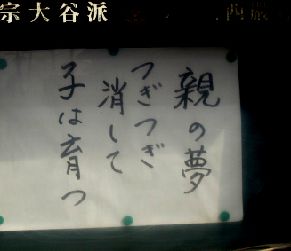 宗大谷派
親の夢
つぎつぎ
消して
子は育つ